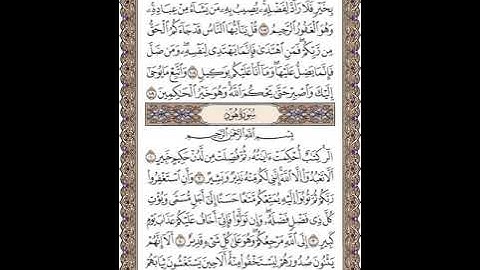 بِخَيْرٍ فَلَا رَآدَّ لِفَضْلِهِۦ يُصِيبُ بِهِۦ مَن يَشَآءُ مِنْ عِبَادِهِۦ
وَهُوَ ٱلْغَفُورُ ٱلرَّحِيمُ ۝١٠٧ قُلْ يَٰٓأَيُّهَا ٱلنَّاسُ قَدْ جَآءَكُمُ ٱلْحَقُّ
مِن رَّبِّكُمْ فَمَنِ ٱهْتَدَىٰ فَإِنَّمَا يَهْتَدِى لِنَفْسِهِۦ وَمَن ضَلَّ
فَإِنَّمَا يَضِلُّ عَلَيْهَا وَمَآ أَنَا۠ عَلَيْكُم بِوَكِيلٍ ۝١٠٨ وَٱتَّبِعْ مَا يُوحَىٰٓ
إِلَيْكَ وَٱصْبِرْ حَتَّىٰ يَحْكُمَ ٱللَّهُ وَهُوَ خَيْرُ ٱلْحَٰكِمِينَ ۝١٠٩
سُورَةُ هُودٍ
بِسْمِ ٱللَّهِ ٱلرَّحْمَٰنِ ٱلرَّحِيمِ
الٓر كِتَٰبٌ أُحْكِمَتْ ءَايَٰتُهُۥ ثُمَّ فُصِّلَتْ مِن لَّدُنْ حَكِيمٍ خَبِيرٍ ۝١
أَلَّا تَعْبُدُوٓا۟ إِلَّا ٱللَّهَ إِنَّنِى لَكُم مِّنْهُ نَذِيرٌ وَبَشِيرٌ ۝٢ وَأَنِ ٱسْتَغْفِرُوا۟
رَبَّكُمْ ثُمَّ تُوبُوٓا۟ إِلَيْهِ يُمَتِّعْكُم مَّتَٰعًا حَسَنًا إِلَىٰٓ أَجَلٍ مُّسَمًّى وَيُؤْتِ
كُلَّ ذِى فَضْلٍ فَضْلَهُۥ وَإِن تَوَلَّوْا۟ فَإِنِّىٓ أَخَافُ عَلَيْكُمْ عَذَابَ يَوْمٍ
كَبِيرٍ ۝٣ إِلَى ٱللَّهِ مَرْجِعُكُمْ وَهُوَ عَلَىٰ كُلِّ شَىْءٍ قَدِيرٌ ۝٤ أَلَآ إِنَّهُمْ
يَثْنُونَ صُدُورَهُمْ لِيَسْتَخْفُوا۟ مِنْهُ أَلَا حِينَ يَسْتَغْشُونَ ثِيَابَهُمْ